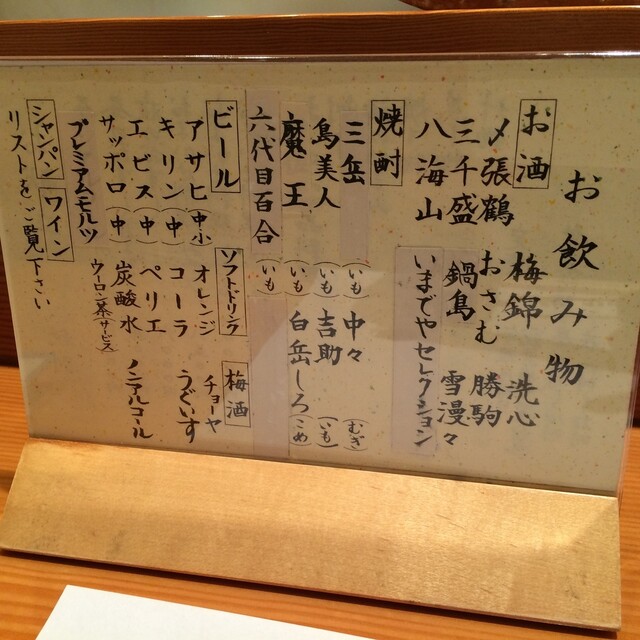 お飲み物
お酒
〆張鶴 梅錦 洗心
三千盛 おさむ 勝駒
八海山 鍋島 雪漫々
いまでやセレクション
焼酎
三岳(いも) 中々(むぎ)
島美人(いも) 吉助(いも)
魔王(いも) 白岳しろ(こめ)
六代目百合(いも)
ビール
アサヒ(中小)
キリン(中)
エビス(中)
サッポロ(中)
プレミアムモルツ
ソフトドリンク
オレンジ
コーラ
ペリエ
炭酸水
ウーロン茶(サービス)
梅酒
チョーヤ
うぐいす
ノンアルコール
シャンパン ワイン
リストをご覧下さい